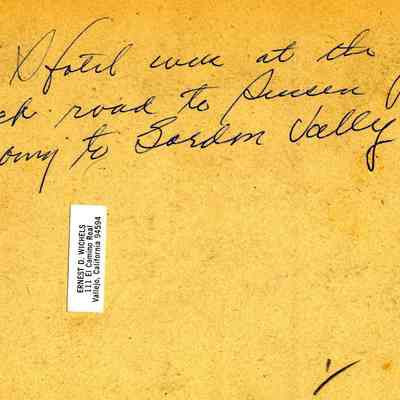 Hotel was at the
road to Suisun
to Gordon Vally
ERNEST D. WICHELS
111 El Camino Real
Vallejo, California 94594